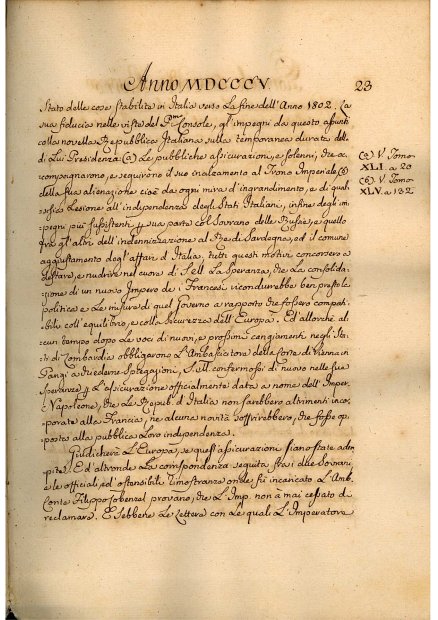 Anno MDCCCV. 23
Stato delle cose stabilita in Italia verso la fine dell'Anno 1802. La
sua fiducia nelle viste del P.mo Console, gl'impegni da questo assunti
colla novella Repubblica Italiana sulla temporanea durata della
di Lui Presidenza (a) Le pubbliche assicurazioni, e solenni, che ac-
compagnavono, e seguirono il suo inalzamento al Trono Imperiale (b)
della sua alienazione cioè da ogni mira d'ingrandimento, e di qual-
sisia Lesione all'independenza degli Stati Italiani, infine degl'im-
pegni più sussistenti sua parte col Sovrano delle Russie, e quello
fra gl'altri dell'indennizazione al Re di Sardegna, ed il comune
aggiustamento degl'affari d'Italia. Tutti questi motivi concorsero a
destare, e nudrire nel cuore di S. M. La Speranza, che La consolida-
zione di un nuovo Impero de' Francesi ricondurrebbe ben presto la
politica e Le misure di quel Governo a rapporto che fossero compati-
bile coll'equilibrio, e colla Sicurezza dell'Europa. Ed allorchè al-
cun tempo dopo Le voci di nuovi, e prossimi cangiamenti negli Sta-
ti di Lombardia obbligarono L'Ambasciatore della Corte di Vienna in
Parigi a chiederne Spiegazioni, S. M. confermossi di nuovo nelle sue
Speranze L'assicurazione officialmente data a nome dell'Imper.
Napoleone, che Le Repub. d'Italia non sarebbero altrimenti incor-
porate alla Francia, ne alcune novità soffrirebbero, che fosse op-
posta alla pubblica Loro independenza.
Giudicherà L'Europa, se quest'assicurazioni siano state adem-
pite. Ed altronde La corrispondenza seguita fra i due Sovrani
e Le officiali, ed ostensibili rimostranze onde fu incaricato L'Amb.
Conte Filippo Cobenzel provano, che L'Imp. non à mai cessato di
reclamare. E sebbene Le Lettera con Le quali L'Imperatore
(a) V. Tomo
XLI. a 20
(b) V. Tomo
XLV. a 132